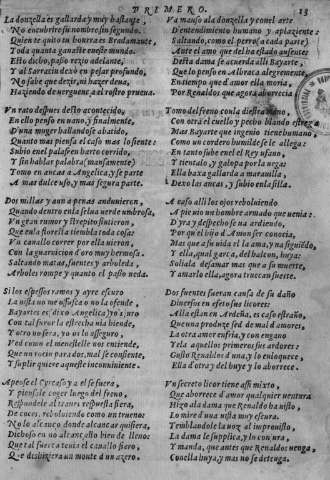 PRIMERO. 13
La donzella es gallarda y muy bastante,
No encubre su nombre sin segundo.
Quien te quito tu honra es Bradamante,
Toda quanta ganaste en este mundo.
Esto dicho, passo rezio adelante,
Y al Sarracin dexò en pesar profundo,
No sabe que dezir, ni que hazer deua,
Haziendo de verguença a el rostro prueua.
Vn rato despues desto acontecido,
En ello penso en vano, y finalmente,
D'una muger hallandose abatido,
Quanto mas piensa el caso mas lo siente:
Subio en el palafren harto corrido,
Y sin hablar palabra (mansamente)
Tomo en ancas a Angelica, y se parte
A mas dulce uso, y mas segura parte.
Dos millas y aun a penas anduuieron,
Quando dentro en la selua verde umbrosa,
Vn gran rumor y strepito sintieron
Que en la floresta tiembla toda cosa:
Vn cauallo correr por ella vieron,
Con la guarnicion d'oro muy hermosa.
Saltando matas, fuentes, y arboleda,
Arboles rompe y quanto el passo veda.
Si los espessos ramos y ayre escuro
La vista no me offusca o no la ofende,
Bayarte es, dixo Angelica, yo juro
Con tal furor la estrecha via hiende,
Y cierto no fuera, yo os lo asseguro,
Ved como el menester le nos entiende,
Que un rocin para dos, mal se consiente,
Y suplir quiere aqueste inconueniente.
Apeose el Circasso y a el se fuera,
Y piensale coger luego del freno,
Respondele al traues respuesta fiera,
De coces, reboluiendo como un trueno:
No lo alcanço donde alcançar quisiera,
Dichoso en no alcançallo bien de lleno:
Que tal fuerça tenia el cauallo fiero,
Que deshiziera un monte d'un azero.
Va manso ala donzella y con el arte
D'entendimiento humano y aplaziente:
Saltando, como el perro (a cada parte)
Ante el amo que del ha estado ausente
Desta dama se acuerda alli Bayarte,
Que lo penso en Albraca alegremente,
En tiempo que d'amor ella moria,
Por Renaldos que agora aborrecia
Tomo del freno con la diestra mano,
Con otra el cuello y pecho blando estrega
Mas Bayarte que ingenio tiene humano,
Como un cordero humilde se le allega:
En tanto sube en el el Rey ufano,
Y tientalo, y galopa por la vega:
Ella baxa gallarda a marauilla
Dexo las ancas, y subio en la silla.
A caso alli los ojos reboluiendo
A pie vio un hombre armado que venia:
D'yra y despecho se va ardiendo,
Por que el hijo d'Amon ser conocia,
Mas que a su vida el la ama, y na seguido,
Y ella, qual garça, del halcon, huya:
Solia la desamar mas que a su muerte,
Y amarla ella, agora truecan suerte.
Dos fuentes fueron causa de su daño
Diuersos en efetos sus licores:
Alla estan en Ardeña, es caso estraño,
Que una produze sed de mal d'amores,
La otra amor enfria, y con engaño
Yela aquellos primeros sus ardores:
Gusto Renaldos d'una, y lo enloquece,
Ella d'otra y del huye y lo aborrece.
Vn secreto licor tiene assi mixto,
Que aborrece d'amor qualquier uentura
Hizo ala dama que Renaldo ha visto,
Lo mire d'una vista muy escura.
Temblandole la voz al improuisto,
La dama le supplica, y lo conjura,
Y manda, que antes que Renaldo venga,
Con ella huya, y mas no se detenga.